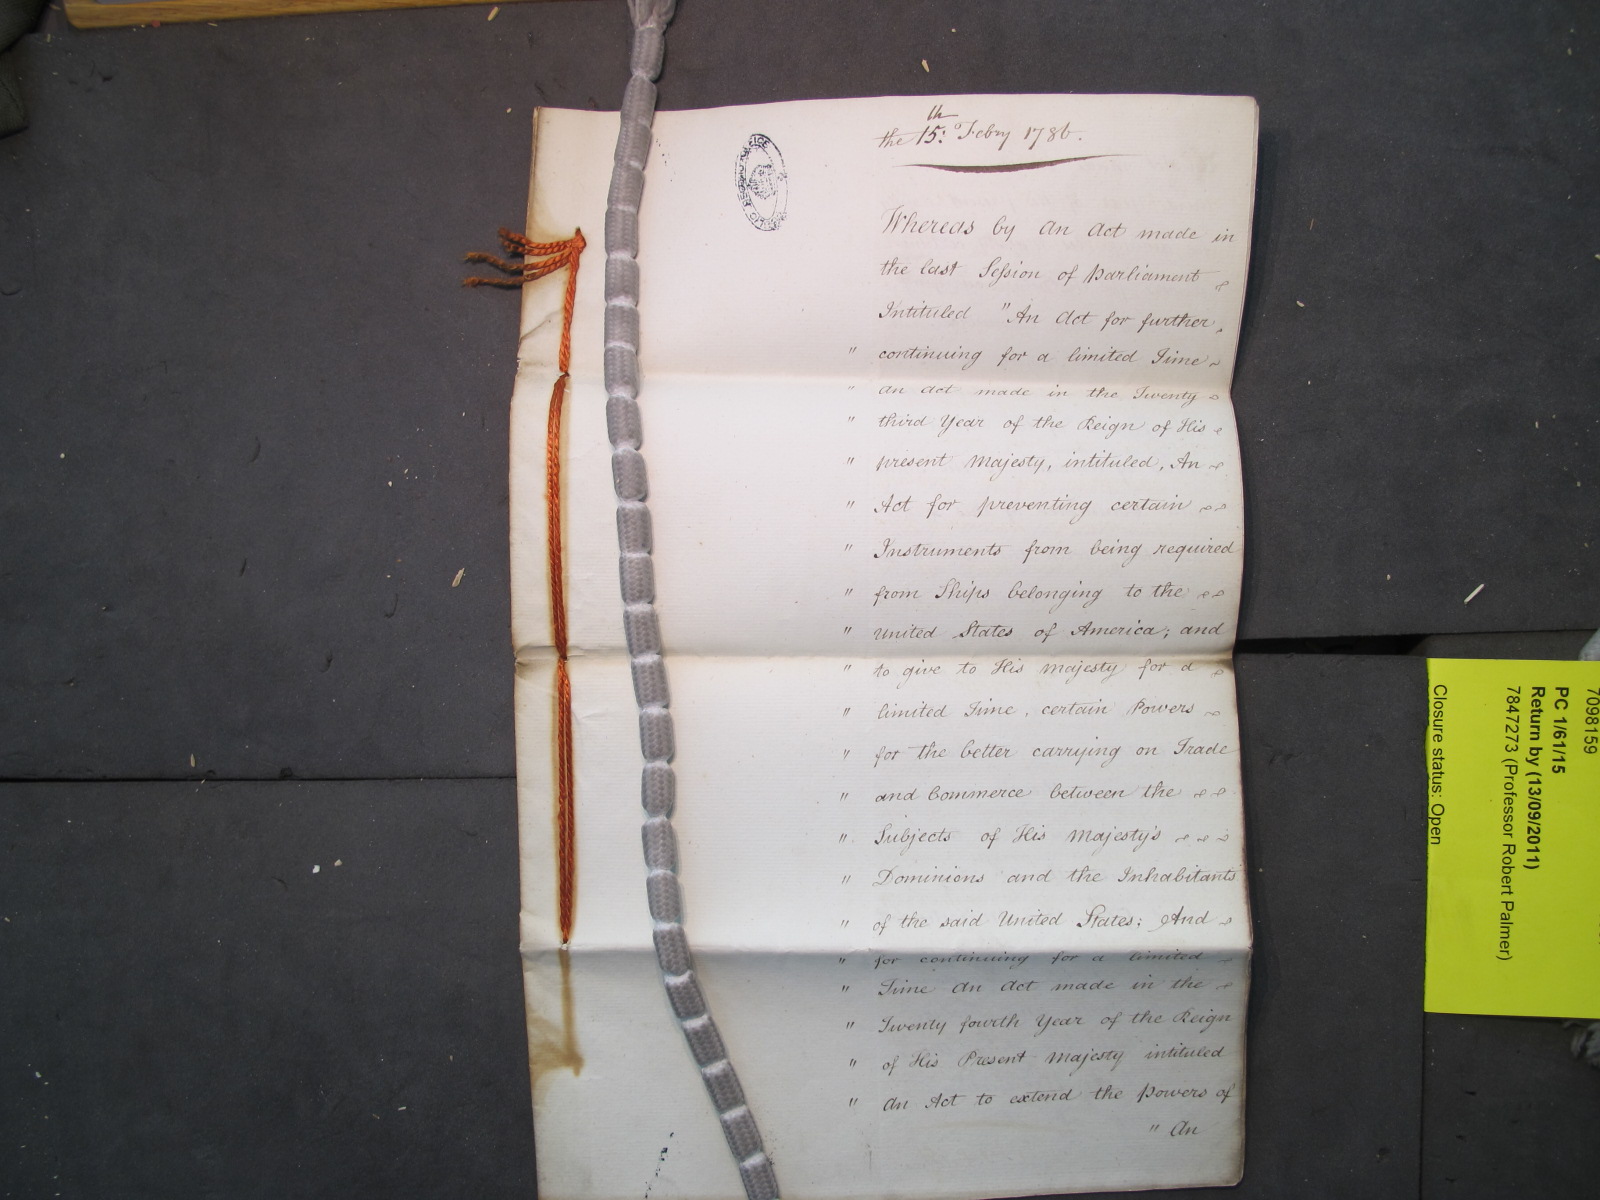 the 15th: Febry 1786.
Whereas by an Act made in
the last Session of Parliament
Intituled "An Act for further
" continuing for a limited Time
" an Act made in the Twenty
" third Year of the Reign of His
" present Majesty, intituled, An
" Act for preventing certain
" Instruments from being required
" from Ships belonging to the
" United States of America; and
" to give to His Majesty for a
" limited Time, certain Powers
" for the better carrying on Trade
" and Commerce between the
" Subjects of His Majesty's
" Dominions and the Inhabitants
" of the said United States; And
" for continuing for a limited
" Time an Act made in the
" Twenty fourth Year of the Reign
" of His Present Majesty intituled
" An Act to extend the Powers of
" An
7098159
PC 1/61/15
Return by (13/09/2011)
7847273 (Professor Robert Palmer)
Closure status: Open